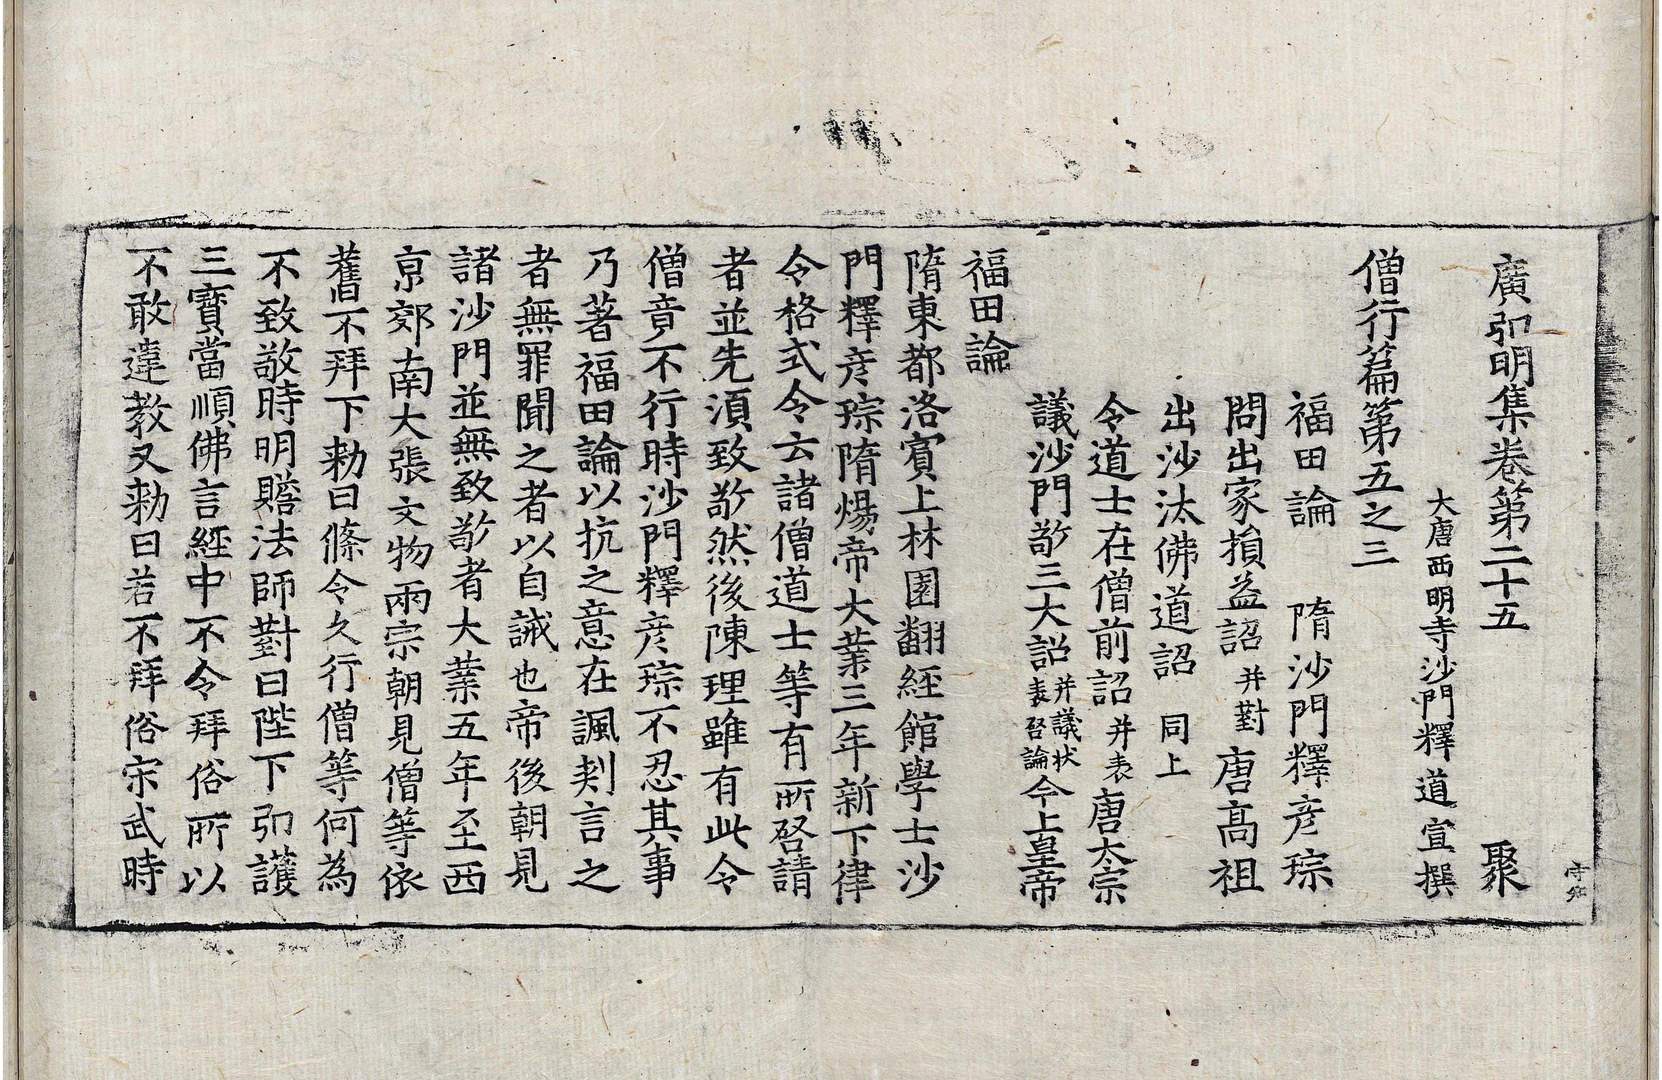 廣弘明集卷第二十五 聚
大唐西明寺沙門釋道宣撰
僧行篇第五之三
福田論 隋沙門釋彦琮
問出家損益詔并對唐高祖
出沙汰佛道詔 同上
令道士在僧前詔并表唐太宗
議沙門敬三大詔并議状表啓論今上皇帝
福田論
隋東都洛賓上林園翻經館學士沙
門釋彦琮隋煬帝大業三年新下律
令格式令云諸僧道士等有所啓請
者並先湏致敬然後陳理雖有此令
僧竟不行時沙門釋彦琮不忍其事
乃著福田論以抗之意在諷刺言之
者無罪聞之者以自誡也帝後朝見
諸沙門並無致敬者大業五年至西
京郊南大張文物兩宗朝見僧等依
舊不拜下勑曰條令久行僧等何為
不致敬時明贍法師對曰陛下弘護
三寶當順佛言經中不令拜俗所以
不敢違教又勑曰若不拜俗宋武時